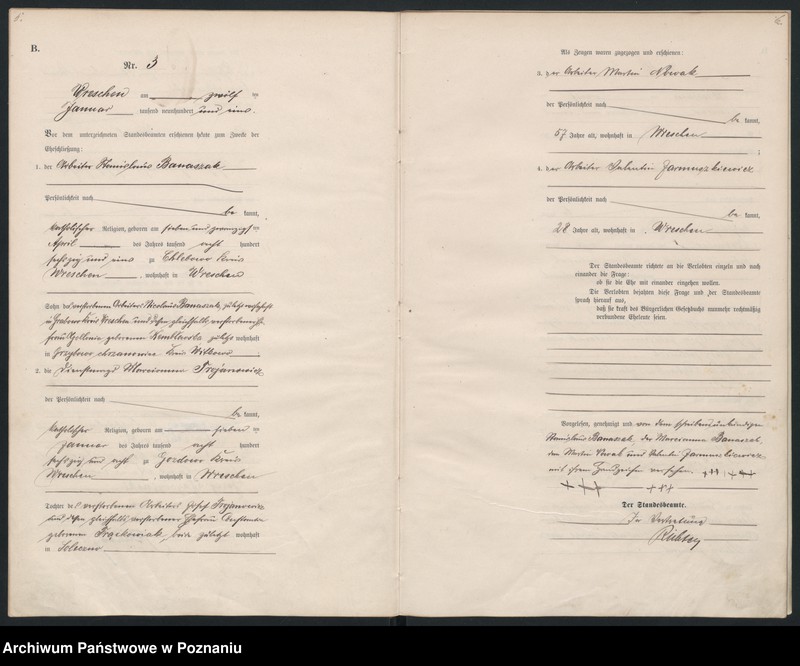 B.
Nr. 3
Wreschen am zwölf ten
Januar tausend neunhundert und eins.
Vor dem unterzeichneten Standesbeamten erschienen heute zum Zwecke der
Eheschließung:
1. der Arbeiter Stanislaus Banaszak
der Persönlichkeit nach
be kannt,
katholischer Religion, geboren am sieben und zwanzigs ten
April des Jahres tausend acht hundert
sechszig und eins zu Chlebowo Kreis
Wreschen, wohnhaft in Wreschen
Sohn des verstorbenen Arbeiters Nicolaus Banaszak, zuletzt wohnhaft
in Kreis Wreschen und dessen gleichfalls verstorbenen Ehe-
frau Apollonia geborenen zuletzt wohnhaft
in Kreis Witkowo
2. die Marcianna Trojanowicz
der Persönlichkeit nach
be kannt,
katholischer Religion, geboren am sieben ten
Januar des Jahres tausend acht hundert
sechszig und acht zu Kreis
Wreschen, wohnhaft in Wreschen
Tochter des verstorbenen Arbeiters Josef Trojanowicz
und dessen gleichfalls verstorbener Ehefrau Constantia
geborenen Frąckowiak, beide zuletzt wohnhaft
in
Als Zeugen waren zugezogen und erschienen:
3. der Arbeiter Martin Nowak
der Persönlichkeit nach
be kannt,
57 Jahre alt, wohnhaft in Wreschen
;
4. der Arbeiter Valentin Jarmuszkiewicz
der Persönlichkeit nach
be kannt,
28 Jahre alt, wohnhaft in Wreschen
Der Standesbeamte richtete an die Verlobten einzeln und nach
einander die Frage:
ob sie die Ehe mit einander eingehen wollen.
Die Verlobten bejahten diese Frage und der Standesbeamte
sprach hierauf aus,
daß sie kraft des Bürgerlichen Gesetzbuchs nunmehr rechtmäßig
verbundene Eheleute seien.
Vorgelesen, genehmigt und von dem schreibensunkundigen
Stanislaus Banaszak, der Marcianna Banaszak,
dem Martin Nowak und Valentin Jarmuszkiewicz
mit ihrem Handzeichen versehen. +++; +++
+++ +++
Der Standesbeamte.
In Vertretung
Archiwum Państwowe w Poznaniu